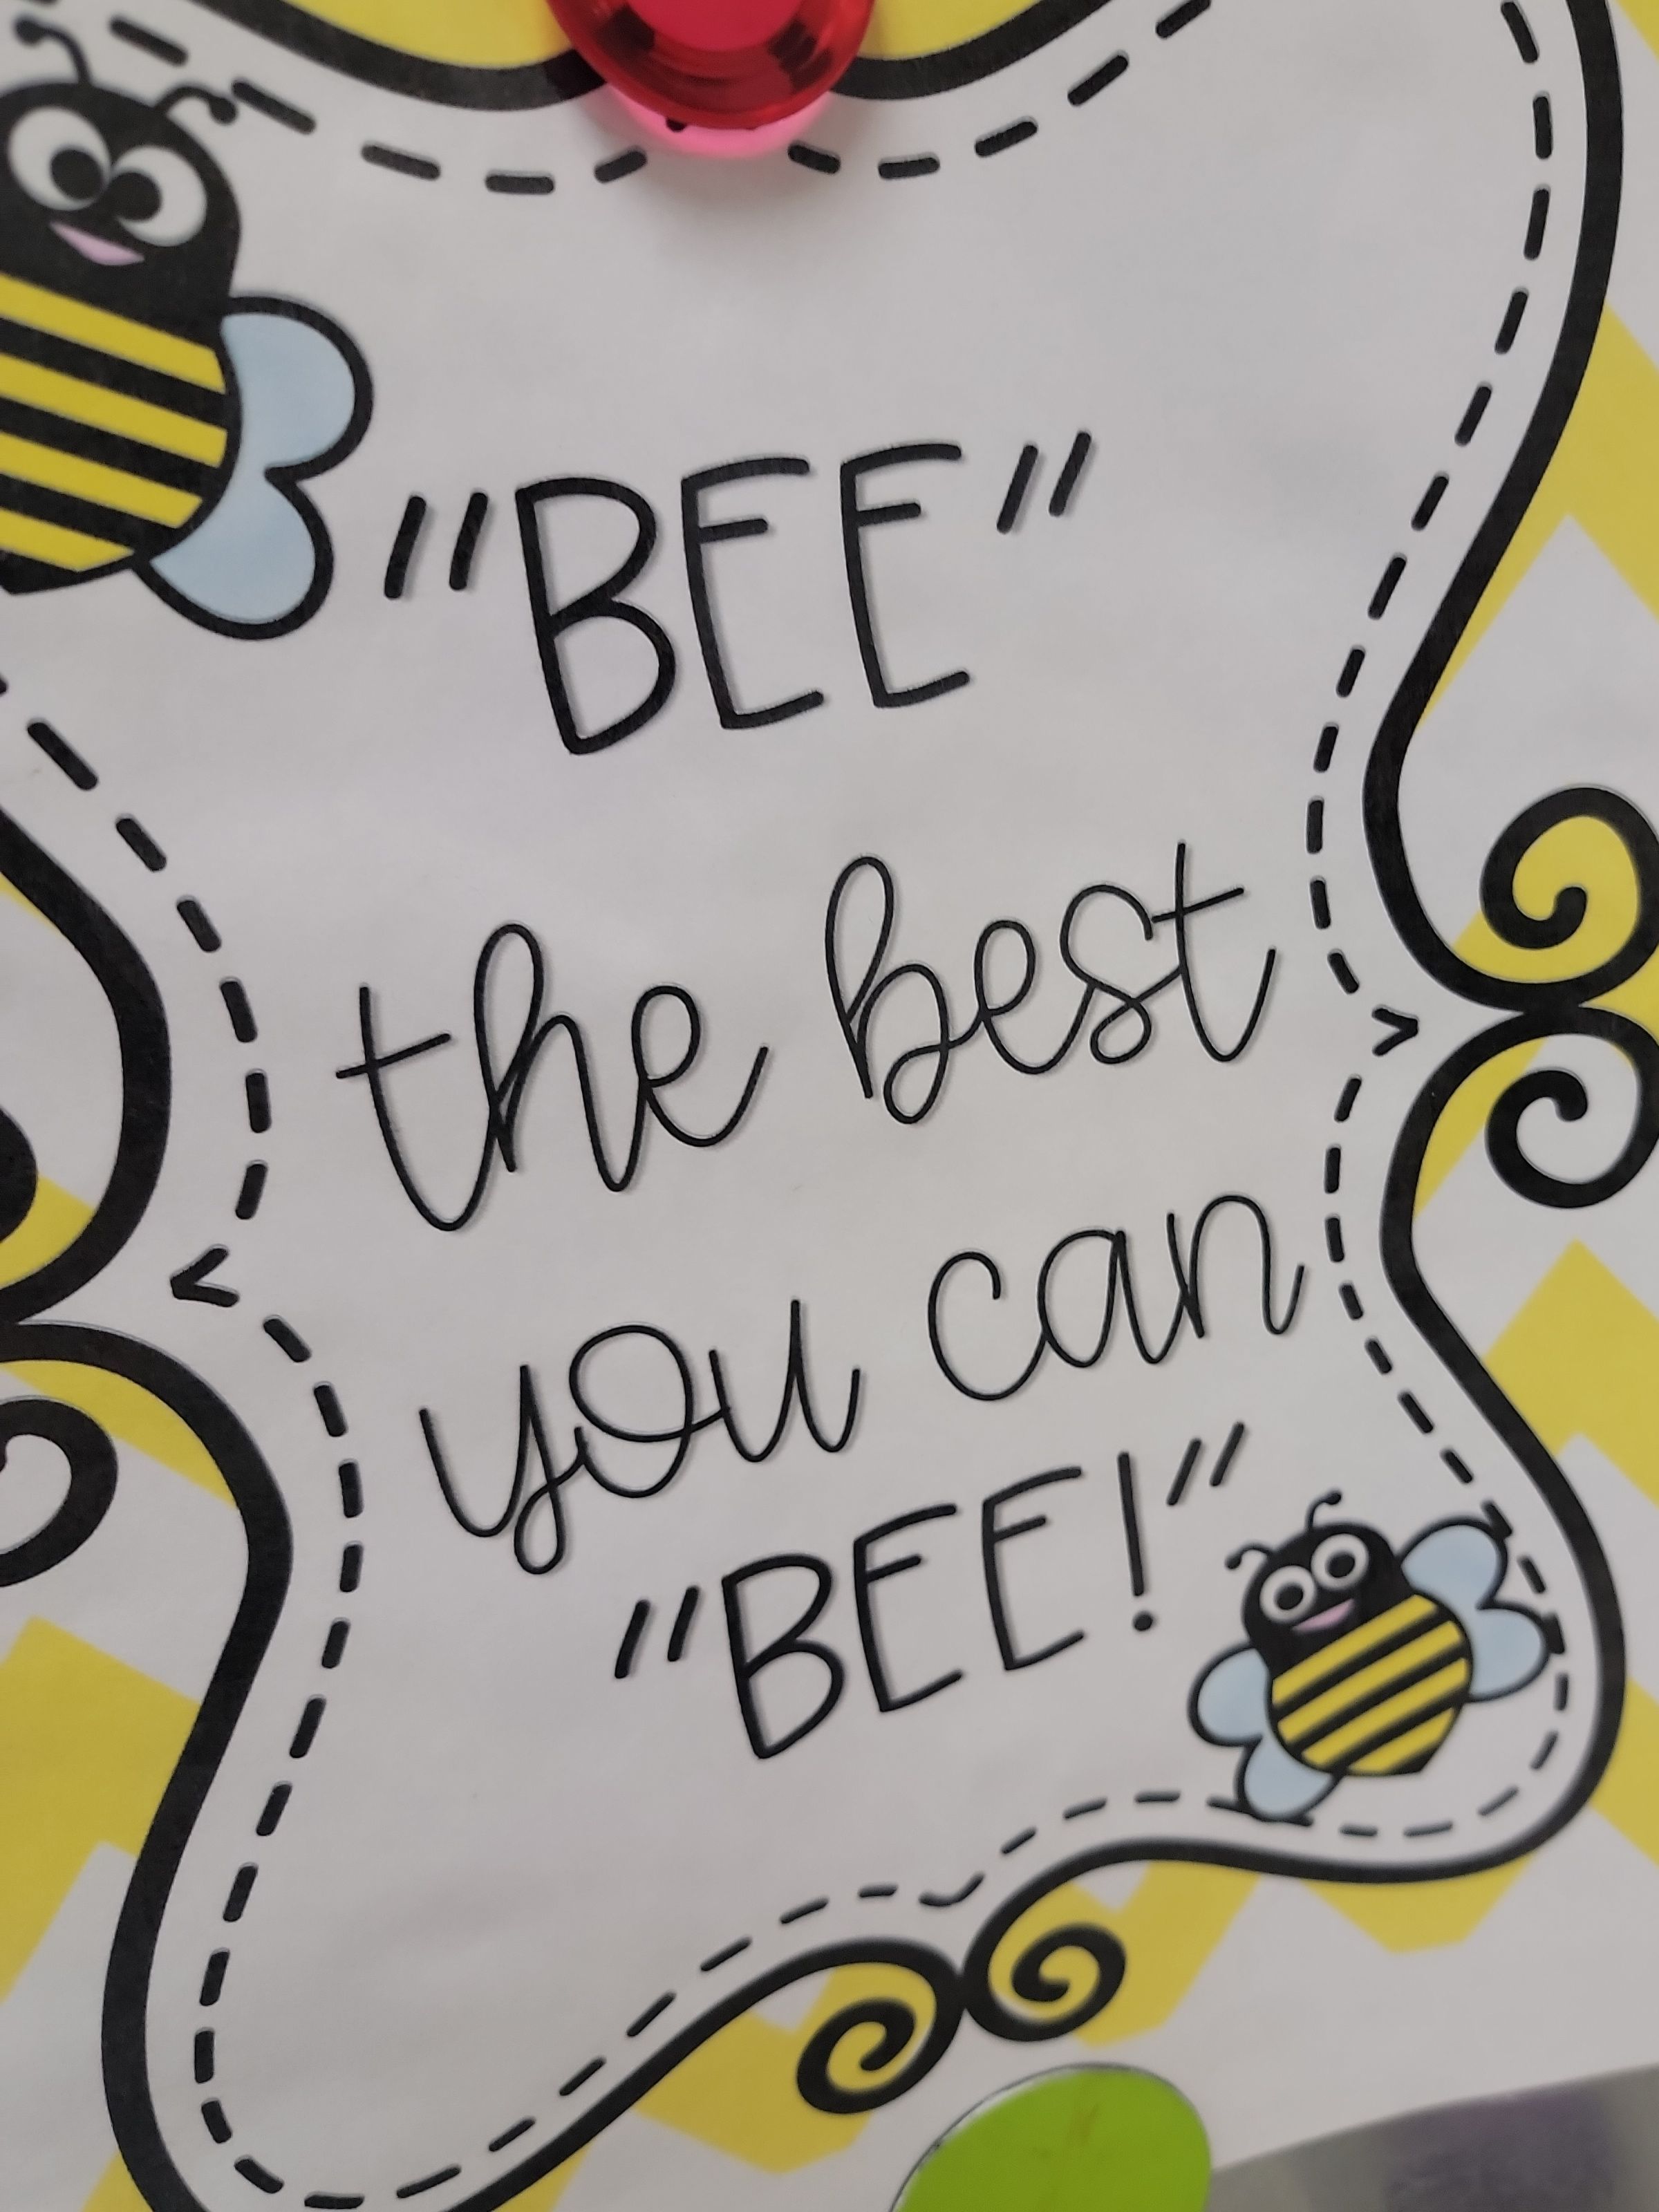 "BEE"
the best
you can
"BEE!"